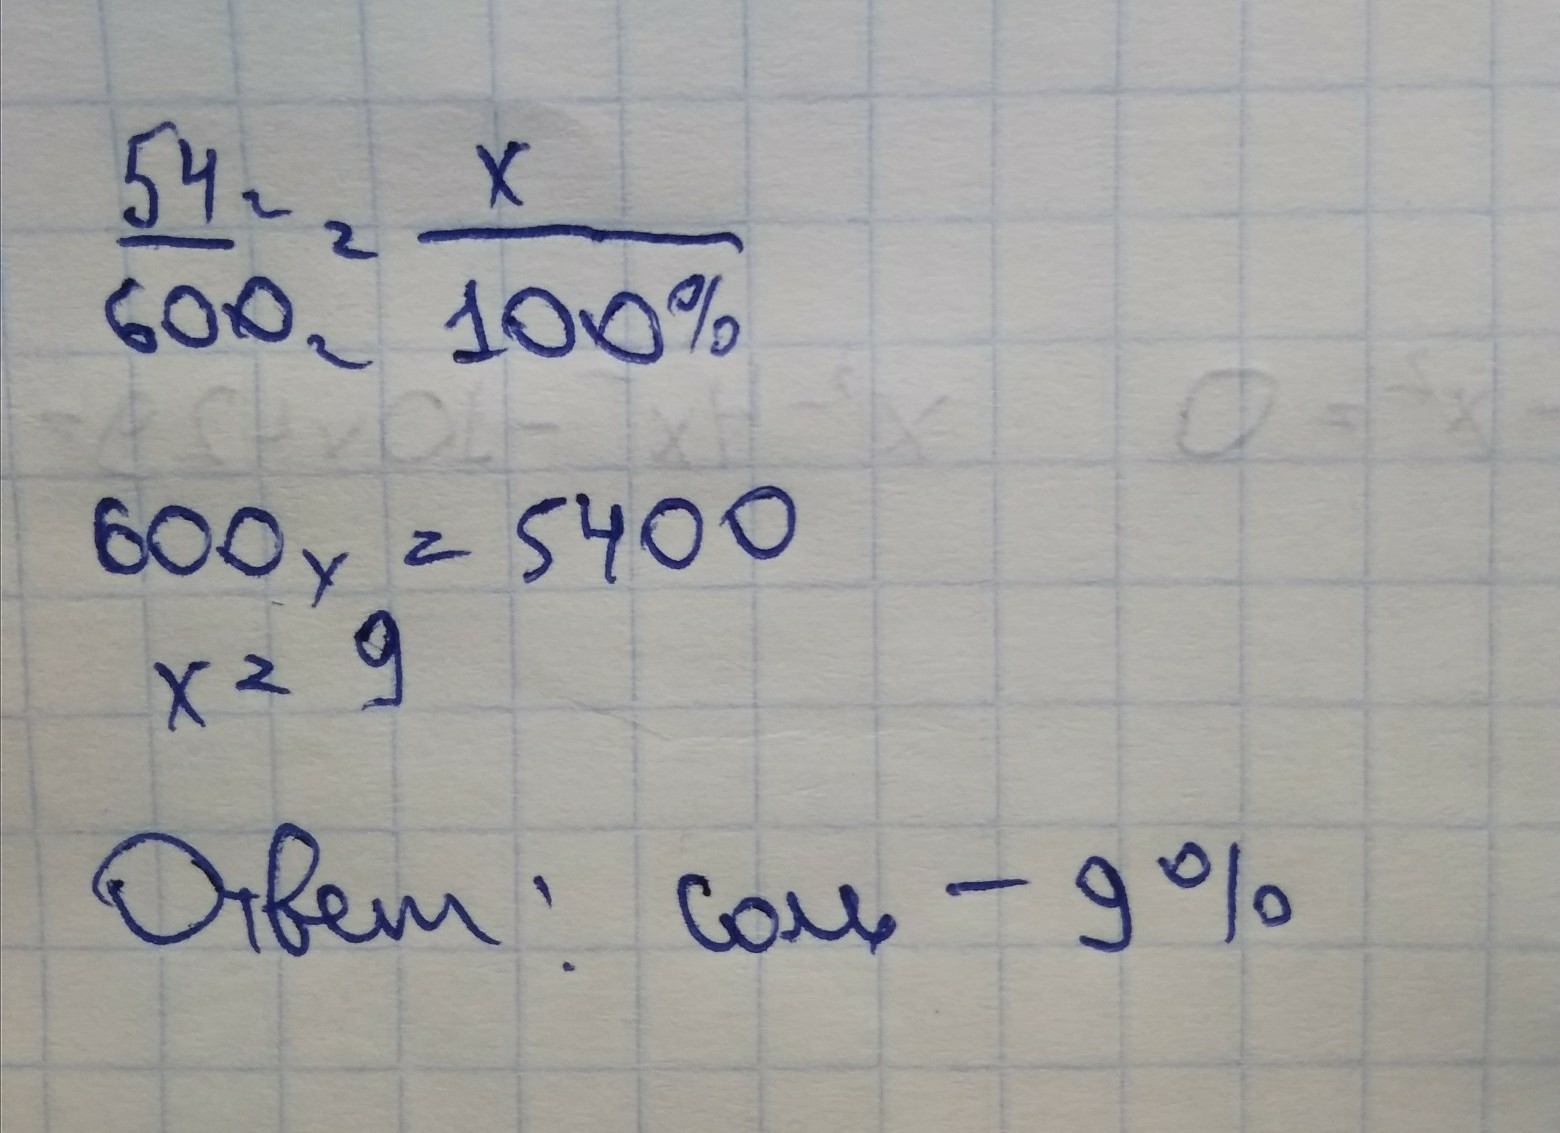 54 г / 600 г = x / 100%
600x = 5400
x = 9
Ответ: соль - 9%